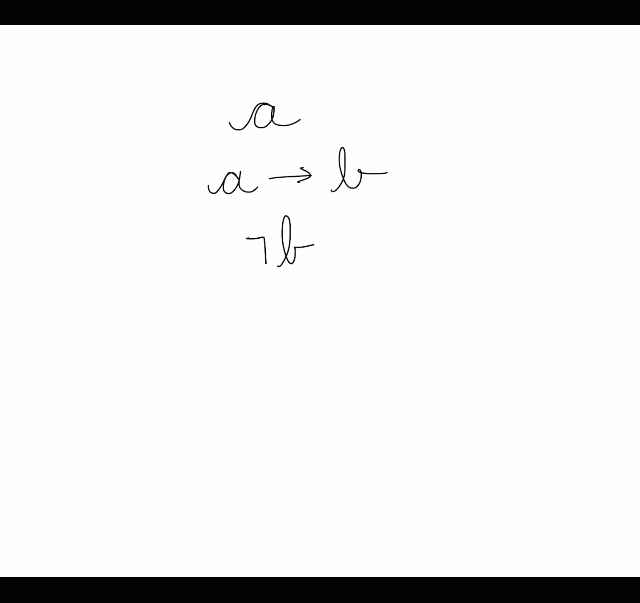 a
a → b
¬b